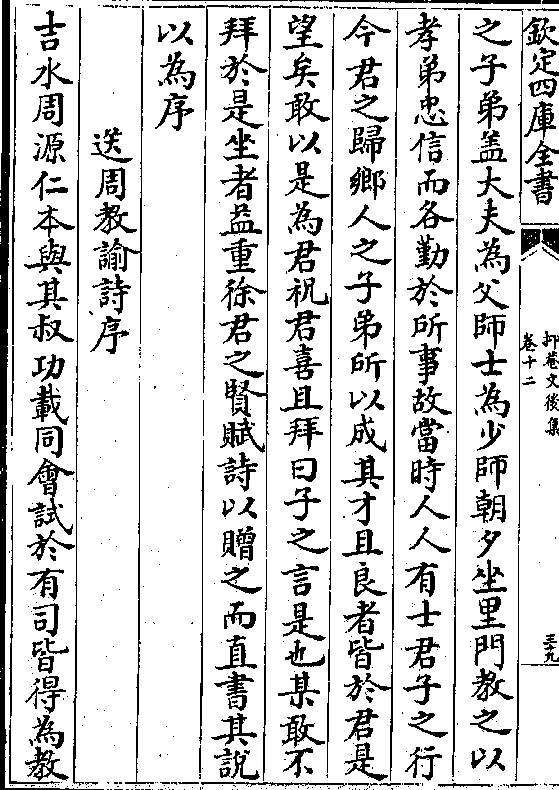 欽定四庫全書
抑菴文後集
卷十二
三十九
之子弟盖大夫為父師士為少師朝夕坐里門教之以
孝弟忠信而各勤於所事故當時人人有士君子之行
今君之歸鄉人之子弟所以成其才且良者皆於君是
望矣敢以是為君祝君喜且拜曰子之言是也某敢不
拜於是坐者益重徐君之賢賦詩以贈之而直書其說
以為序
送周教諭詩序
吉水周源仁本與其叔功載同會試於有司皆得為教